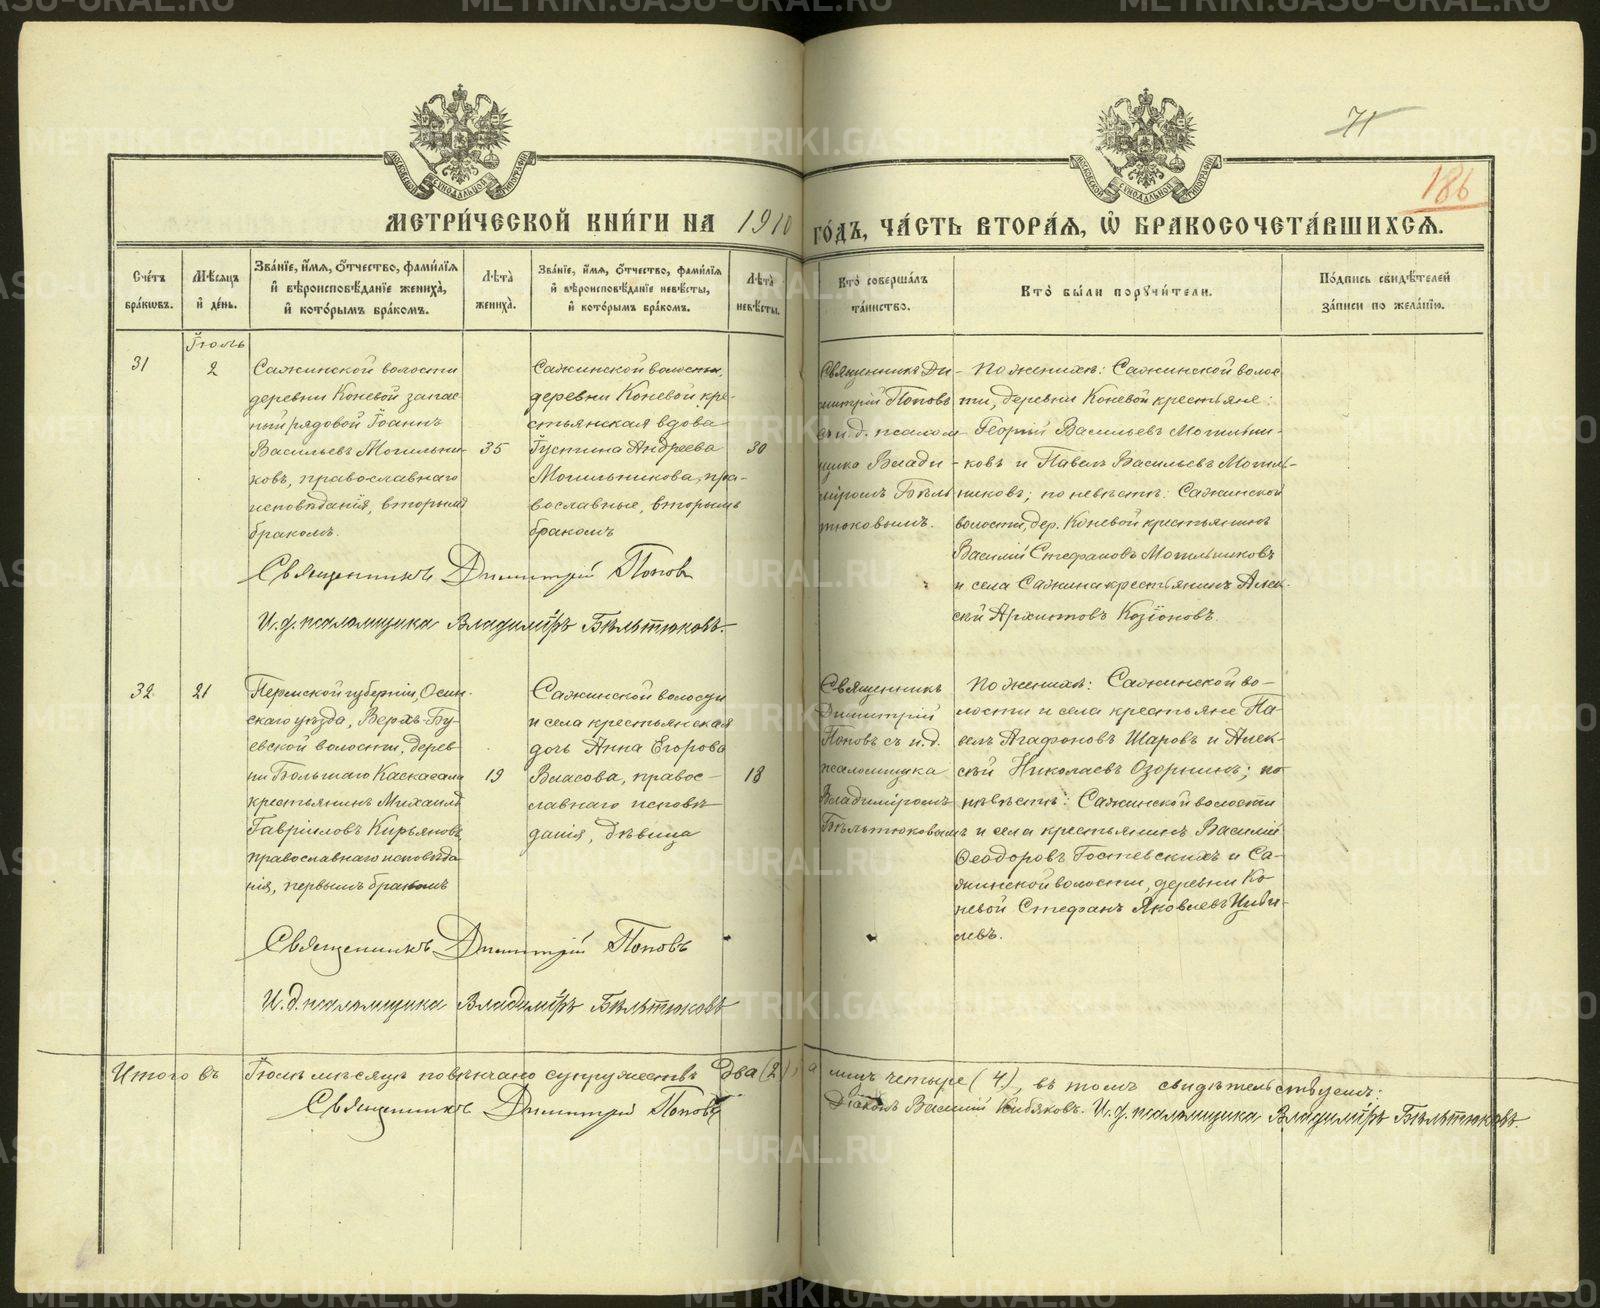 71
186
МОСКОВСКОЙ СѴНОДАЛЬНОЙ ТИПОГРАФІИ
МОСКОВСКОЙ СѴНОДАЛЬНОЙ ТИПОГРАФІИ
МЕТРИ́ЧЕСКОЙ КНИ́ГИ НА 1910 ГО́ДЪ, ЧА́СТЬ ВТОРА́Ѧ, Ѡ҆ БРАКОСОЧЕТА́ВШИХСѦ.
Сче́тъ бра́кѡвъ.
Мѣ́сѧцъ и҆ де́нь.
Зва́нїе, и҆́мѧ, ѻ҆́тчество, фами́лїѧ и҆ вѣроисповѣ́данїе жениха̀, и҆ кото́рымъ бра́комъ.
Лѣ́та жениха̀.
Зва́нїе, и҆́мѧ, ѻ҆́тчество, фами́лїѧ и҆ вѣроисповѣ́данїе невѣ́сты, и҆ кото́рымъ бра́комъ.
Лѣ́та невѣ́сты.
Кто̀ соверша́лъ та́инство.
Кто̀ бы́ли порꙋчи́тели.
По́дпись свидѣ́телей за́писи по жела́нїю.
Іюль
31
2
Сажинской волости
деревни Коневой запас-
ный рядовой Іоаннъ
Васильевъ Могильни-
ковъ, православнаго
исповѣданія, вторымъ
бракомъ.
35
Сажинской волости,
деревни Коневой кре-
стьянская вдова
Іустина Андреева
Могильникова, пра-
вославные, вторымъ
бракомъ
30
Священникъ Ди-
митрій Поповъ
съ и.д. псалом-
щика Влади-
міромъ Бѣль-
тюковымъ.
По женихѣ: Сажинской волос-
ти, деревни Коневой крестьяне:
Георгій Васильевъ Могильни-
ковъ и Павелъ Васильевъ Могиль-
никовъ; по невѣстѣ: Сажинской
волости, дер. Коневой крестьянинъ
Василій Стефановъ Могильниковъ
и села Сажина крестьянинъ Алек-
сѣй Архиповъ Козіоновъ.
Священникъ Димитрій Поповъ
И. д. псаломщика Владиміръ Бѣльтюковъ.
32
21
Пермской губерніи, Осин-
скаго уѣзда, Верхъ-Бу-
евской волости, дерев-
ни Большаго Каскасала
крестьянинъ Михаилъ
Гавріиловъ Кирьяновъ
православнаго исповѣда-
нія, первымъ бракомъ
19
Сажинской волости
и села крестьянская
дочь Анна Егорова
Власова, правос-
лавнаго исповѣ
данія, дѣвица
18
Священникъ
Димитрій
Поповъ съ и.д.
псаломщика
Владиміромъ
Бѣльтюковымъ
По женихѣ: Сажинской во-
лости и села крестьяне Па-
велъ Агафоновъ Шаровъ и Алек-
сѣй Николаевъ Озорнинъ; по
невѣстѣ: Сажинской волости
и села крестьянинъ Василій
Ѳеодоровъ Гостевскихъ и Са-
жинской волости, деревни Ко
невой Стефанъ Яковлевъ
Священникъ Димитрій Поповъ
И. д. псаломщика Владиміръ Бѣльтюковъ
Итого въ Іюлѣ мѣсяцѣ повѣнчано супружествъ два (2), а лицъ четыре (4), въ томъ свидѣтельствуемъ:
Священникъ Димитрій Поповъ Діаконъ Василій Кибяковъ. И. д. псаломщика Владиміръ Бѣльтюковъ.
METRIKI.GASO-URAL.RU